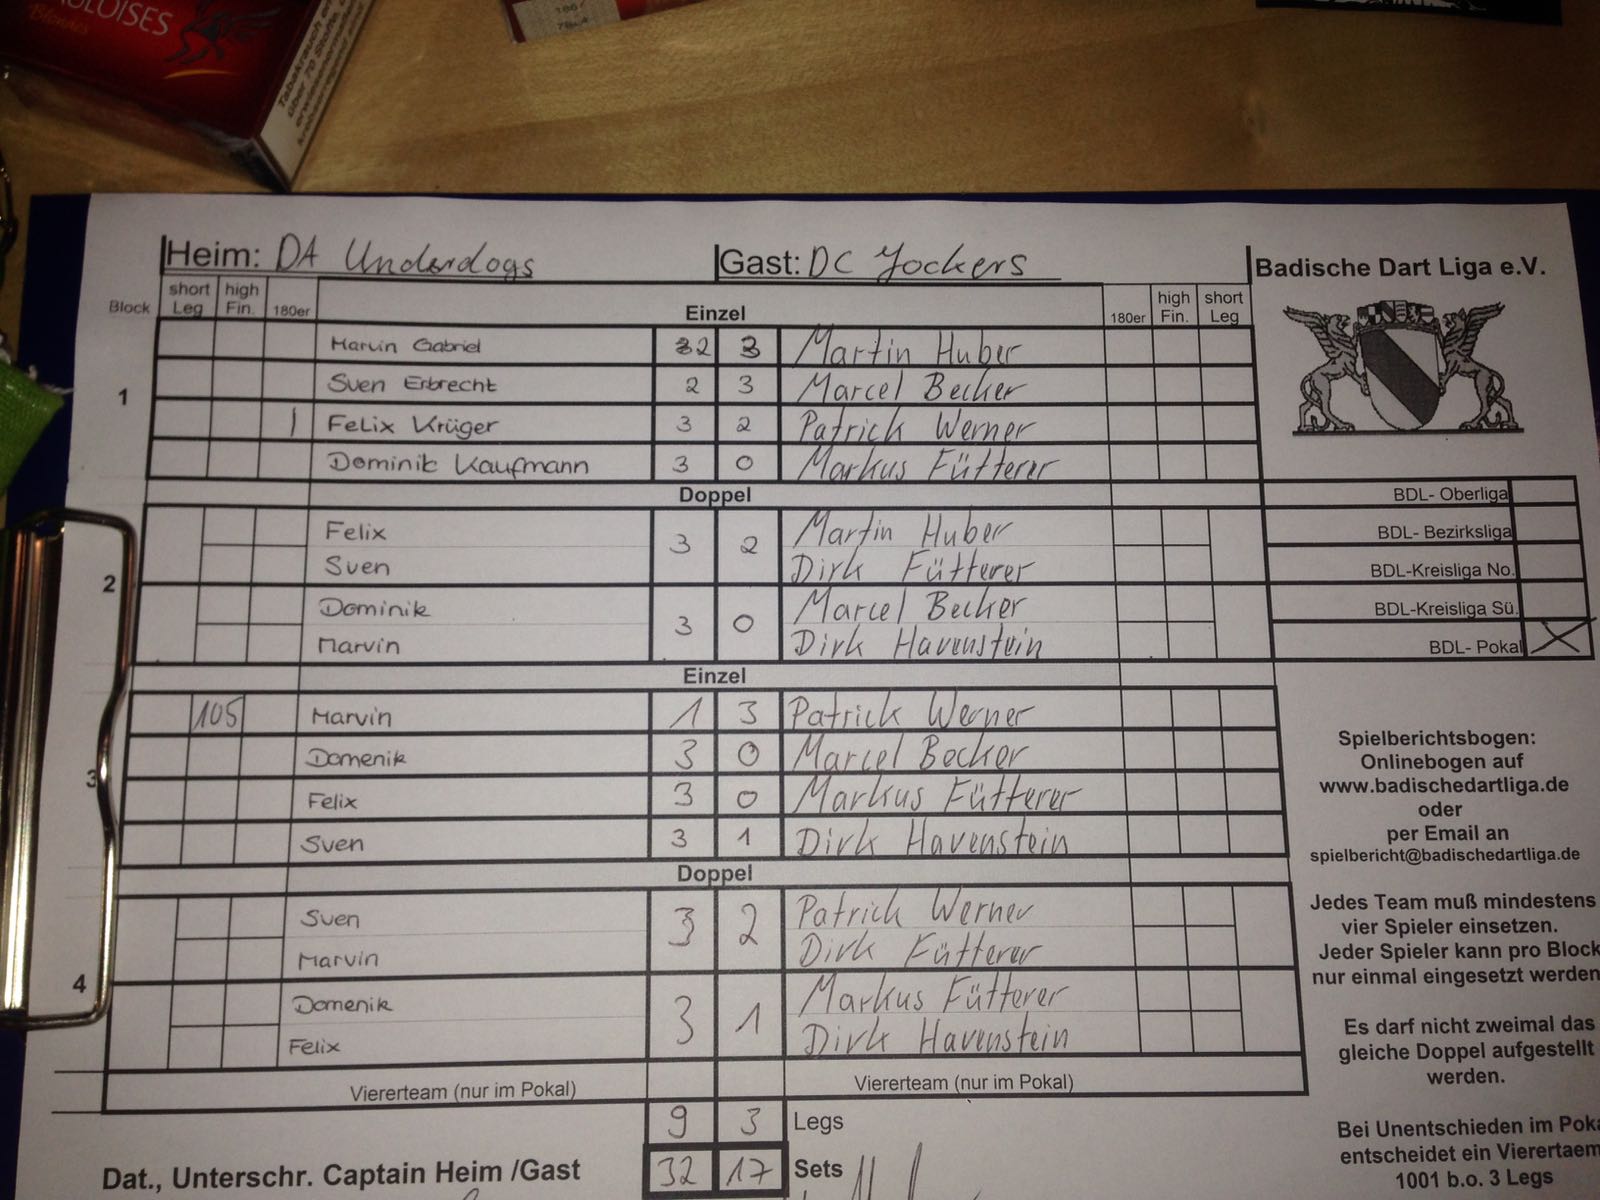 LOISES
Blondes
Heim: DA Underdogs Gast: DC Jockers Badische Dart Liga e.V.
Block short Leg high Fin. 180er Einzel 180er high Fin. short Leg
1
Marvin Gabriel 2 3 Martin Huber
Sven Erbrecht 2 3 Marcel Becker
| Felix Krüger 3 2 Patrick Werner
Dominik Kaufmann 3 0 Markus Fütterer
Doppel
2
Felix 3 2 Martin Huber
Sven Dirk Fütterer
Dominik 3 0 Marcel Becker
Marvin Dirk Havenstein
Einzel
3
105 Marvin 1 3 Patrick Werner
Domenik 3 0 Marcel Becker
Felix 3 0 Markus Fütterer
Sven 3 1 Dirk Havenstein
Doppel
4
Sven 3 2 Patrick Werner
Marvin Dirk Fütterer
Domenik 3 1 Markus Fütterer
Felix Dirk Havenstein
Viererteam (nur im Pokal) Viererteam (nur im Pokal)
9 3 Legs
Dat., Unterschr. Captain Heim /Gast 32 17 Sets
BDL- Oberliga
BDL- Bezirksliga
BDL-Kreisliga No.
BDL-Kreisliga Sü.
BDL- Pokal X
Spielberichtsbogen:
Onlinebogen auf
www.badischedartliga.de
oder
per Email an
spielbericht@badischedartliga.de
Jedes Team muß mindestens
vier Spieler einsetzen.
Jeder Spieler kann pro Block
nur einmal eingesetzt werden
Es darf nicht zweimal das
gleiche Doppel aufgestellt
werden.
Bei Unentschieden im Poka
entscheidet ein Vierertaem
1001 b.o. 3 Legs